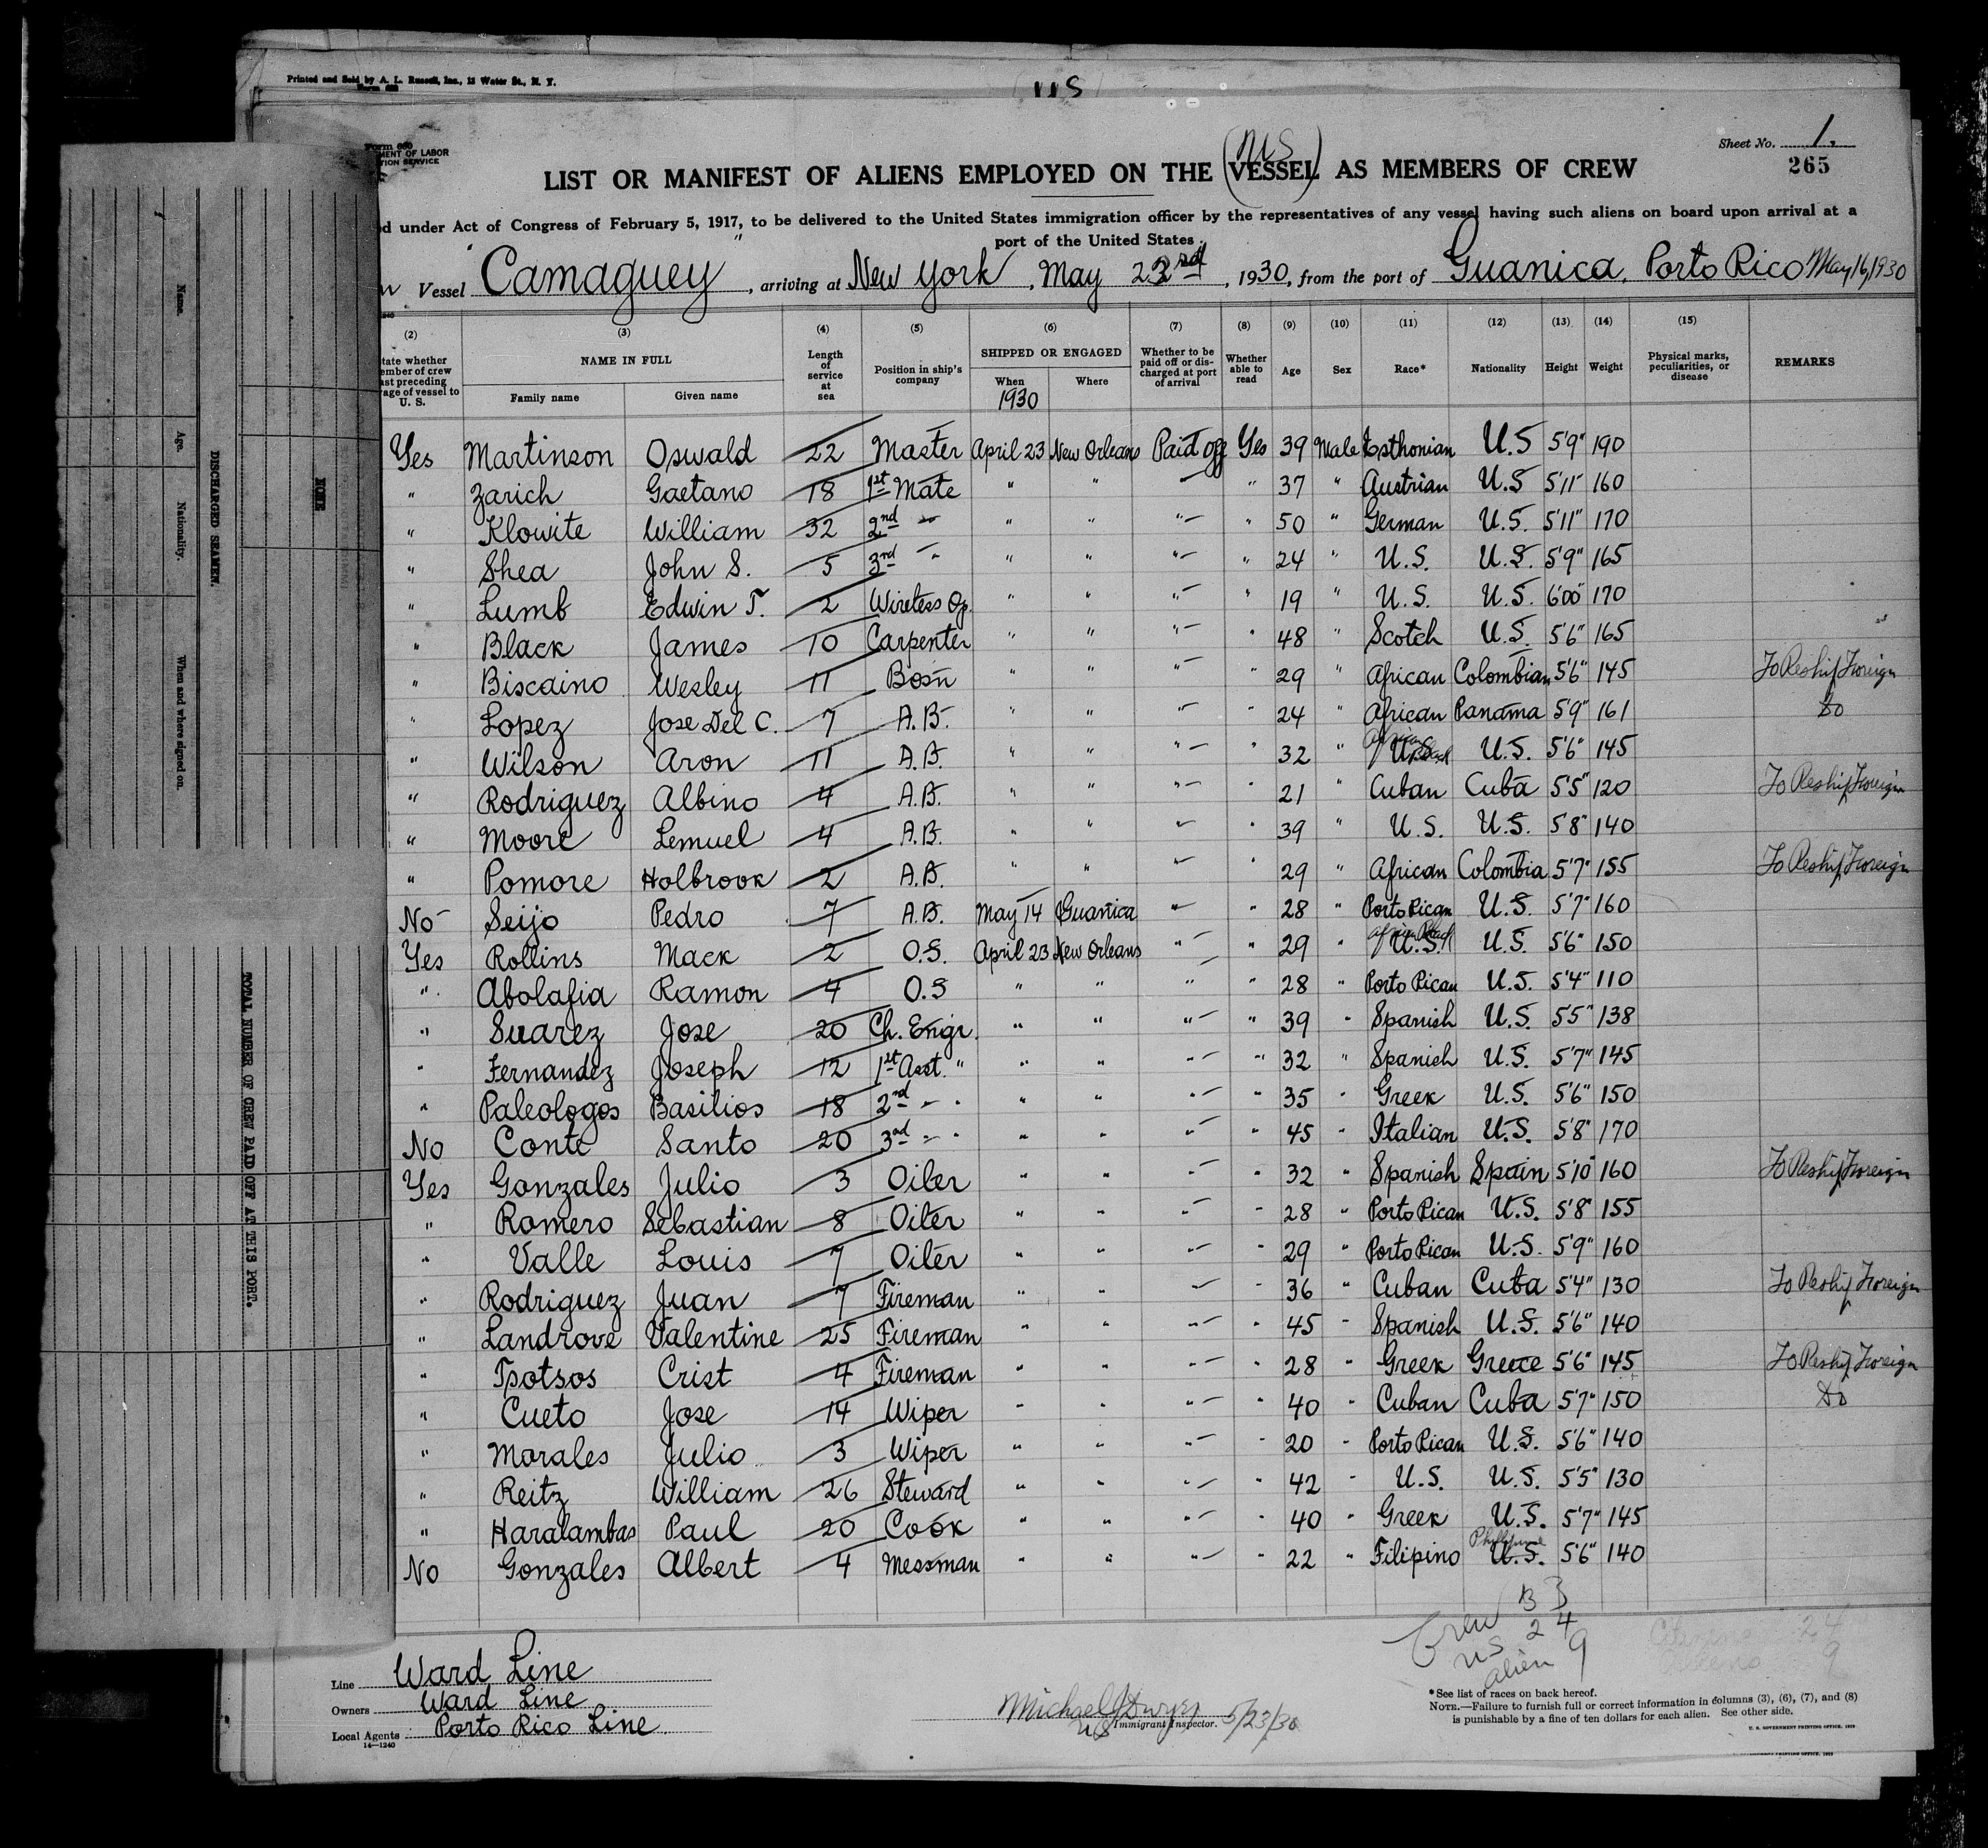 Printed and Sold by A. L. Russell, Inc., 13 Water St., N. Y.
US
Sheet No. 1.
265
MENT OF LABOR
TION SERVICE
LIST OR MANIFEST OF ALIENS EMPLOYED ON THE (VESSEL) AS MEMBERS OF CREW
d under Act of Congress of February 5, 1917, to be delivered to the United States immigration officer by the representatives of any vessel having such aliens on board upon arrival at a
port of the United States
Vessel "Camaguey", arriving at New York, May 23rd, 1930, from the port of Guanica, Porto Rico May 16, 1930
(2) (3) (4) (5) (6) (7) (8) (9) (10) (11) (12) (13) (14) (15)
tate whether ember of crew ast preceding age of vessel to U. S. NAME IN FULL Family name Given name Length of service at sea Position in ship's company SHIPPED OR ENGAGED When 1930 Where Whether to be paid off or discharged at port of arrival Whether able to read Age Sex Race* Nationality Height Weight Physical marks, peculiarities, or disease REMARKS
Yes Martinson Oswald 22 Master April 23 New Orleans Paid off Yes 39 Male Esthonian U.S 5'9" 190
" Zarich Gaetano 18 1st Mate " " " " 37 " Austrian U.S 5'11" 160
" Klowite William 32 2nd " " " " " 50 " German U.S. 5'11" 170
" Shea John S. 5 3rd " " " " " 24 " U.S. U.S. 5'9" 165
" Lumb Edwin T. 2 Wireless Op. " " " " 19 " U.S. U.S. 6'00" 170
" Black James 10 Carpenter " " " " 48 " Scotch U.S. 5'6" 165
" Biscaino Wesley 11 Bosn " " " " 29 " African Colombian 5'6" 145 To Reship Foreign
" Lopez Jose Del C. 7 A.B. " " " " 24 " African Panama 5'9" 161 Do
" Wilson Aron 11 A.B. " " " " 32 " African U.S. 5'6" 145
" Rodriguez Albino 4 A.B. " " " " 21 " Cuban Cuba 5'5" 120 To Reship Foreign
" Moore Lemuel 4 A.B. " " " " 39 " U.S. U.S. 5'8" 140
" Pomore Holbrook 2 A.B. " " " " 29 " African Colombia 5'7" 155 To Reship Foreign
No Seijo Pedro 7 A.B. May 14 Guanica " " 28 " Porto Rican U.S. 5'7" 160
Yes Rollins Mack 2 O.S. April 23 New Orleans " " 29 " African Black U.S. U.S. 5'6" 150
" Abolafia Ramon 4 O.S " " " " 28 " Porto Rican U.S. 5'4" 110
" Suarez Jose 20 Ch. Engr. " " " " 39 " Spanish U.S. 5'5" 138
" Fernandez Joseph 12 1st Asst. " " " " " 32 " Spanish U.S. 5'7" 145
" Paleologos Basilios 18 2nd " " " " " " 35 " Greek U.S. 5'6" 150
No Conte Santo 20 3rd " " " " " " 45 " Italian U.S. 5'8" 170
Yes Gonzales Julio 3 Oiler " " " " 32 " Spanish Spain 5'10" 160 To Reship Foreign
" Romero Sebastian 8 Oiler " " " " 28 " Porto Rican U.S. 5'8" 155
" Valle Louis 7 Oiler " " " " 29 " Porto Rican U.S. 5'9" 160
" Rodriguez Juan 7 Fireman " " " " 36 " Cuban Cuba 5'4" 130 To Reship Foreign
" Landrove Valentine 25 Fireman " " " " 45 " Spanish U.S. 5'6" 140
" Tsotsos Crist 4 Fireman " " " " 28 " Greek Greece 5'6" 145 To Reship Foreign
" Cueto Jose 14 Wiper " " " " 40 " Cuban Cuba 5'7" 150 Do
" Morales Julio 3 Wiper " " " " 20 " Porto Rican U.S. 5'6" 140
" Reitz William 26 Steward " " " " 42 " U.S. U.S. 5'5" 130
" Haralambas Paul 20 Cook " " " " 40 " Greek U.S. 5'7" 145
No Gonzales Albert 4 Messman " " " " 22 " Filipino U.S. 5'6" 140
Crew 33
US 24
alien 9
Citizens 24
Aliens 9
Line Ward Line
Owners Ward Line
Local Agents Porto Rico Line
14—1240
Michael J Dwyer
US Immigrant Inspector. 5/23/30
*See list of races on back hereof.
NOTE.—Failure to furnish full or correct information in columns (3), (6), (7), and (8)
is punishable by a fine of ten dollars for each alien. See other side.
U. S. GOVERNMENT PRINTING OFFICE, 1929
Name.
Age.
Nationality.
When and where signed on.
DISCHARGED SEAMEN.
NOTE
TOTAL NUMBER OF CREW PAID OFF AT THIS PORT.